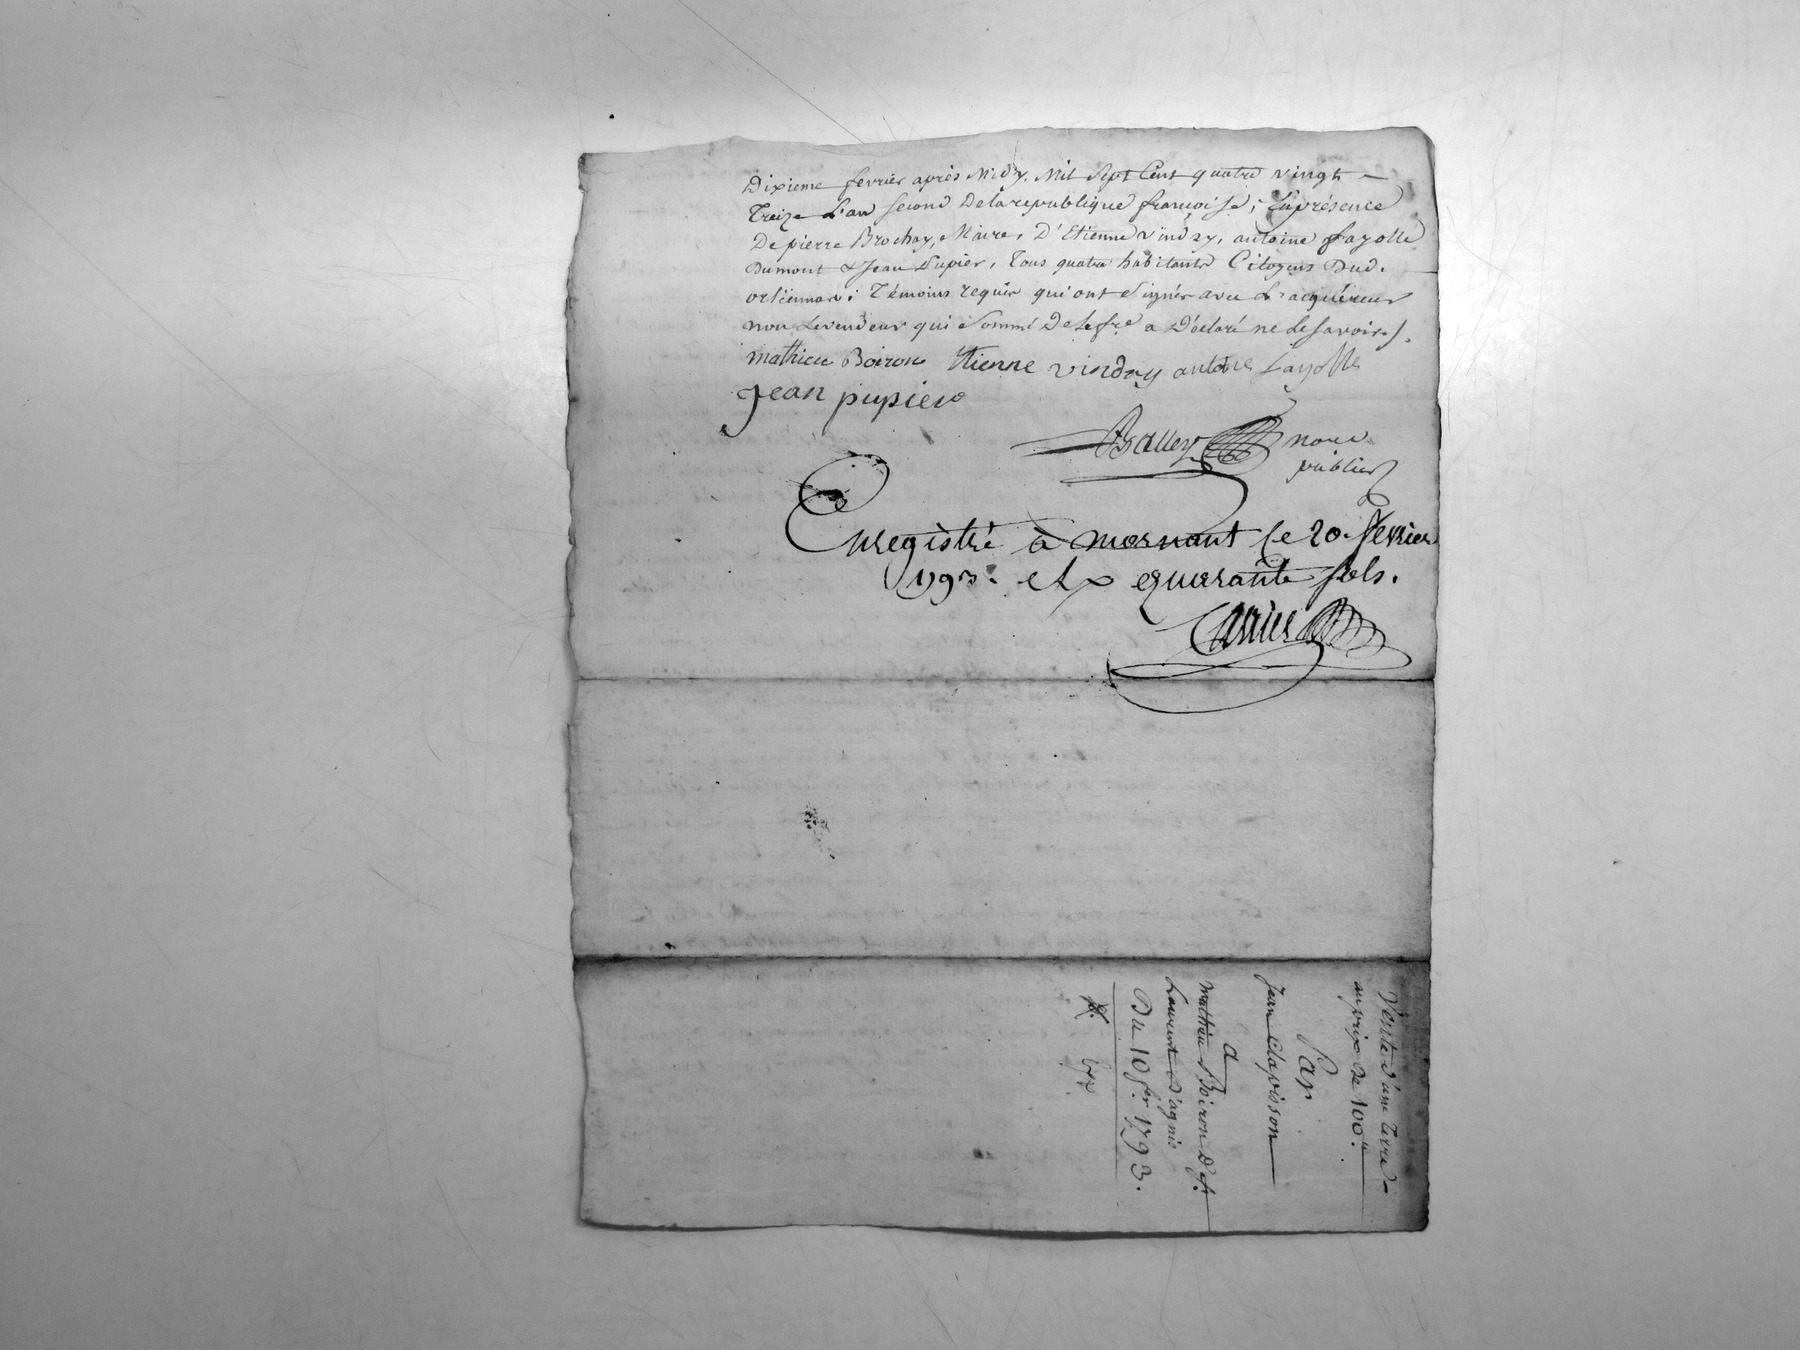 Dixieme fevrier après Midy. Mil Sept Cent quatre vingt
Treize L'an Second De la republique françoise; En présence
De pierre Brochay, Maire, D'Etienne vindry, antoine fayolle
Dumont & Jean Pupier, Tous quatre habitants Citoyens Dud.
orliennas; Témoins requis qui ont Signés avec L'acquéreur
non Le vendeur qui Sommé De Le fre a Déclaré ne Le Savoir.
mathieu Boiron Etienne vindry antoine fayolle
Jean pupier
nore
public
Enregistré à mornant le 20. fevrier
1793. quarante sols.
Vente d'une Terre
au prix de 100ᵗᵗ.
Par
Jean Clapisson
a
Mathieu Boiron De St
Laurent D'agnis
Du 10 fer 1793.